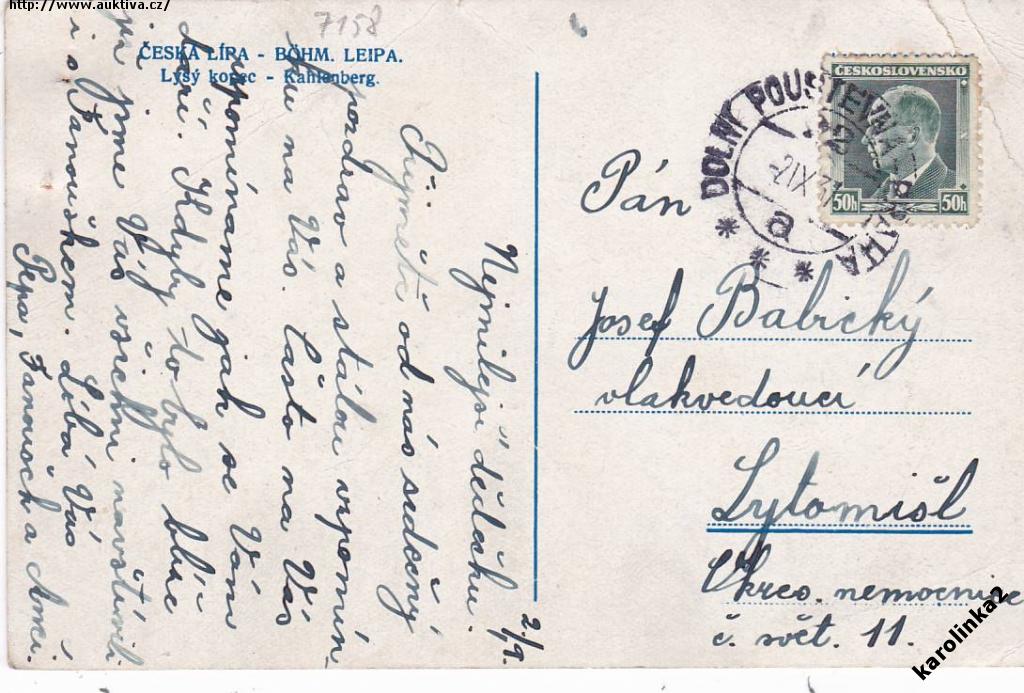 http://www.auktiva.cz/
7158
ČESKÁ LÍPA - BÖHM. LEIPA.
Lysý kopec - Kahlenberg.
2/9.
Nejmilejší dědečku.
Přijměte od nás srdečný
pozdrav a stálou vzpomín-
ku na Vás. Často na Vás
vzpomínáme jak se Vám
daří. Kdyby to bylo blíže
jeli jsme Vás všichni navštívili
i s Fanouškem. Líbá Vás
Pepa, Fanouch a
ČESKOSLOVENSKO
50h 50h
DOLNÍ POUSTEVNA
-2.IX.37
a
Pán
Josef Babický
vlakvedoucí
Lytomišl
Okres. nemocnice
č. svět. 11.
karolinka2